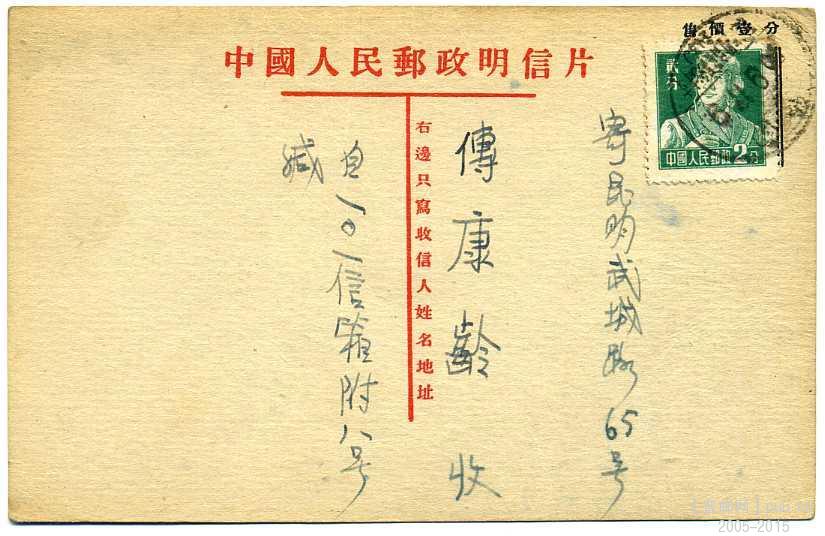 售價壹分
中國人民郵政明信片
貳分
中國人民郵政2分
寄昆明武城路65号
傳康齡 收
右邊只寫收信人姓名地址
自一〇一信箱附八号
緘
2005-2015